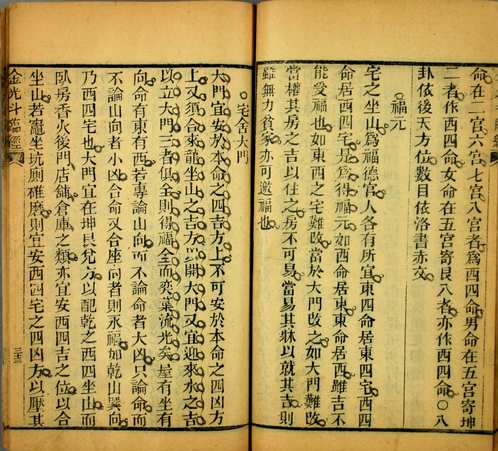 命在二宮六宮七宮八宮者爲西四命男命在五宮寄坤
二者作西四命女命在五宮寄艮八者亦作西四命〇八
卦依後天方位數目依洛書赤文
福元
宅之坐山爲福德宮人各有所宜東四命居東四宅西四
命居西四宅是爲得福元如西命居東東命居西雖吉不
能受福也如東西之宅難改當於大門改之如大門難改
當權其房之吉以住之房不可易當易其牀以就其吉則
雖無力貧家亦可邀福也
宅舍大門
大門宜安於本命之四吉方上不可安於本命之四凶方
上又須合來龍坐山之吉方以開大門又宜迎來水之吉
以立大門三者俱全則得福全而奕葉流光矣屋有坐有
向命有東有西若專論山向而不論命者大凶只論命而
不論山向者小凶合命又合座向者則永福如乾山巽向
乃西四宅也大門宜在坤艮兌方以配乾之西四坐山而
臥房香火後門店舖倉庫之類亦宜安西四吉之位以合
坐山若竈坐坑廁碓磨則宜安西四宅之四凶方以壓其
金光斗臨經